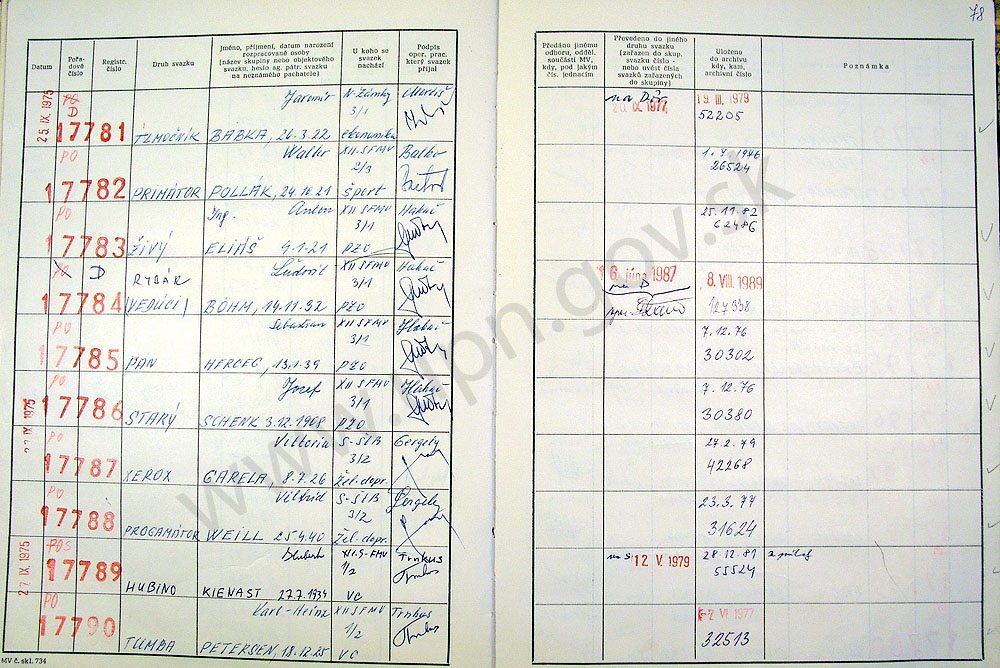 78
Datum
Pořadové číslo
Registr. číslo
Druh svazku
Jméno, příjmení, datum narození rozpracované osoby (název skupiny nebo objektového svazku, heslo ag. pátr. svazku na neznámého pachatele)
U koho se svazek nachází
Podpis oper. prac. který svazek přijal
Předáno jinému odboru, odděl. součásti MV, kdy, pod jakým čís. jednacím
Převedeno do jiného druhu svazku (zařazen do skup. svazku číslo - nebo uvést čísla svazků zařazených do skupiny)
Uloženo do archivu kdy, kam, archivní číslo
Poznámka
25. IX. 1975
PO
D
17781
TLMOČNÍK
Jaromír
BABKA, 26.3.22
N. Zámky
3/1
ekonomika
19. III. 1979
52205
PO
17782
PRIMÁTOR
Walter
POLLÁK, 24.10.21
XII SFMV
2/3
Šport
Balko
1.7.1976
26524
PO
17783
ŽIVÝ
Ing. Anton
ELIÁŠ 4.1.21
XII SFMV
3/1
PZO
25.11.82
62486
D
17784
RYBÁR
(VEDÚCI)
Ľudovít
BÖHM, 14.11.32
XII SFMV
3/1
PZO
16. júna 1987
na D
8. VIII. 1989
127338
PO
7785
PAN
Sebastian
HERCEG, 13.1.39
XII SFMV
3/1
PZO
7.12.76
30302
PO
17786
STARÝ
Jozef
SCHENK 3.12.1908
XII SFMV
3/1
PZO
7.12.76
30380
PO
17787
XEROX
Viktoria
GARELA 8.7.26
S-ŠtB
3/2
Žel. dopr.
Gergely
27.2.79
42268
PO
17788
PROGAMÁTOR
Vilfrid
WEILL 25.9.40
S-ŠtB
3/2
Žel. dopr.
Gergely
23.3.77
31624
27. IX. 1975
POS
17789
HUBINO
KIENAST 27.7.1934
XII. S-FMV
1/2
VC
Trnkus
12 V. 1979
28.12.81
55524
PO
17790
TUMBA
Karl-Heinz
PETERSEN, 18.12.25
XII SFMV
1/2
VC
Trnkus
VI 1977
32513
MV č. skl. 734
www.upn.gov.sk